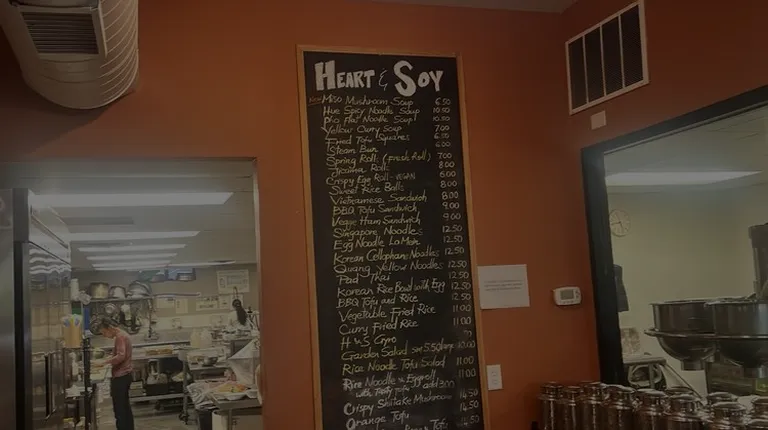 HEART & SOY
New Miso Mushroom Soup 6.50
Hue Spicy Noodle Soup 10.50
Pho Flat Noodle Soup 10.50
Yellow Curry Soup 7.00
Fried Tofu Squares 6.50
Steam Bun 6.00
Spring Roll (fresh Roll) 7.00
Jicama Rolls 8.00
Crispy Egg Roll-VEGAN 6.00
Sweet Rice Balls 8.00
Vietnamese Sandwich 8.00
BBQ Tofu Sandwich 9.00
Veggie Ham Sandwich 9.00
Singapore Noodles 12.50
Egg Noodle Lo Mein 12.50
Korean Cellophane Noodles 12.50
Quang Yellow Noodles 12.50
Pad Thai 12.50
Korean Rice Bowl with Egg 12.50
BBQ Tofu and Rice 12.50
Vegetable Fried Rice 11.00
Curry Fried Rice 11.00
H & S Gyro
Garden Salad SM 5.50 Lrg 10.00
Rice Noodle Tofu Salad 11.00
Rice Noodle w Eggroll 11.00
with Tofu add 3.00
Crispy Shiitake Mushroom 14.50
Orange Tofu 14.50
Tofu